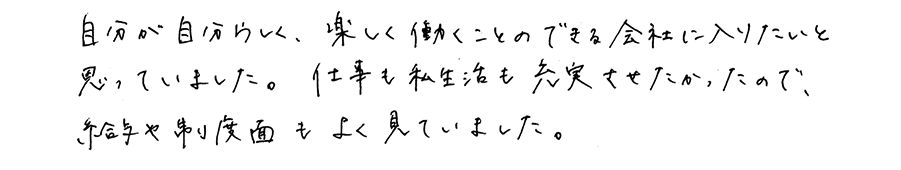 自分が自分らしく、楽しく働くことのできる会社に入りたいと
思っていました。仕事も私生活も充実させたかったので、
給与や制度面もよく見ていました。